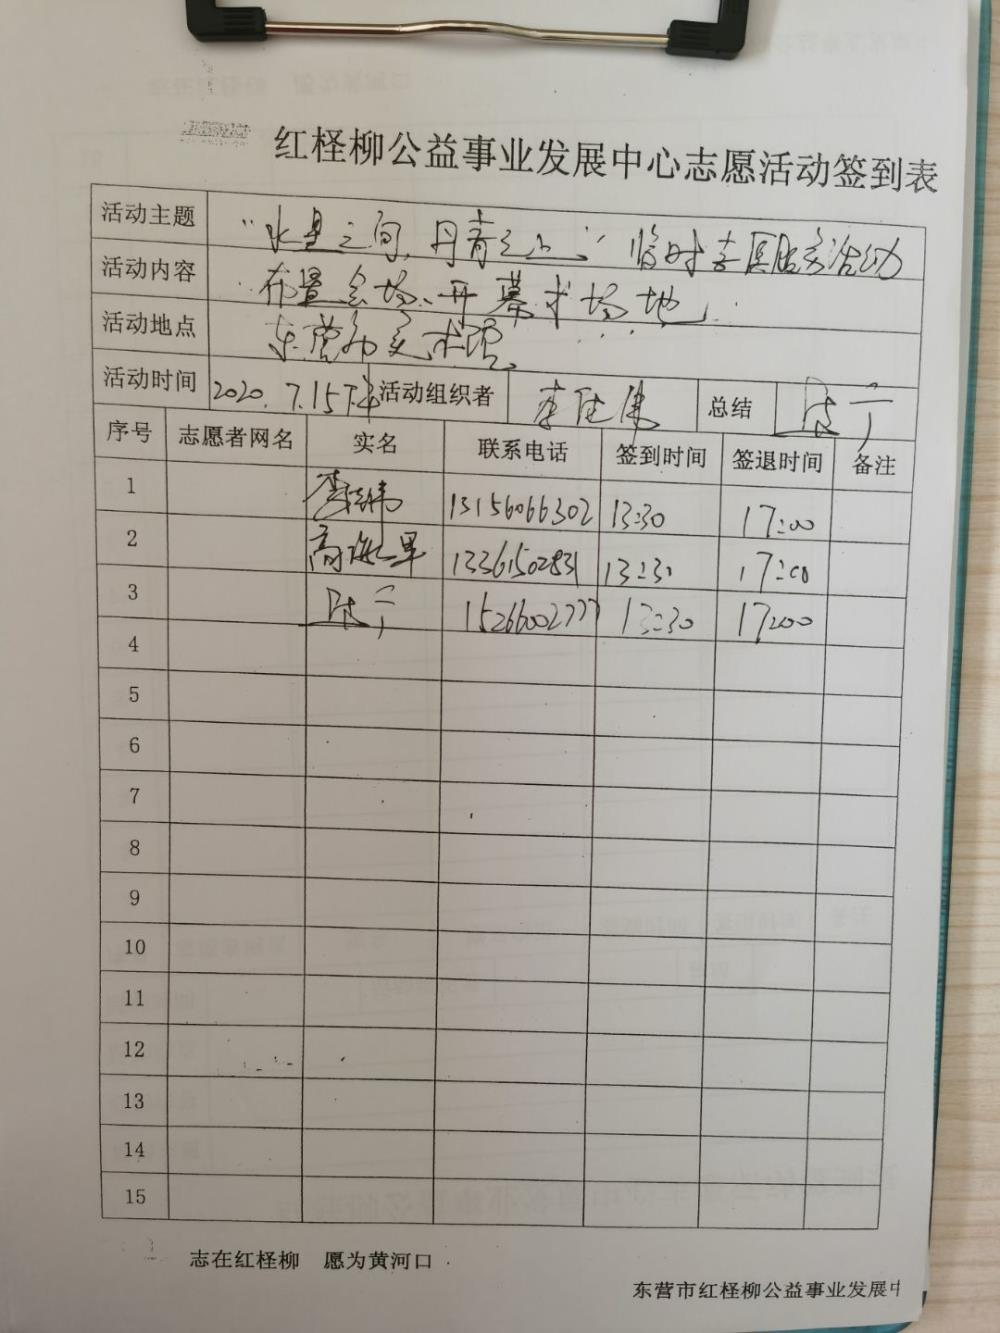 红柽柳公益事业发展中心志愿活动签到表
活动主题 “水墨之间,丹青之上” 临时志愿服务活动
活动内容 布置会场、开幕式场地
活动地点 东营市美术馆
活动时间 2020.7.15下午 活动组织者 总结
序号 志愿者网名 实名 联系电话 签到时间 签退时间 备注
1 13156066302 13:30 17:00
2 13361502831 13:30 17:00
3 15266002777 13:30 17:00
4
5
6
7
8
9
10
11
12
13
14
15
志在红柽柳 愿为黄河口
东营市红柽柳公益事业发展中